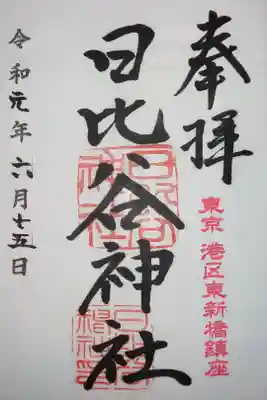 奉拝
東京 港区東新橋鎮座
日比谷神社
令和元年六月十五日